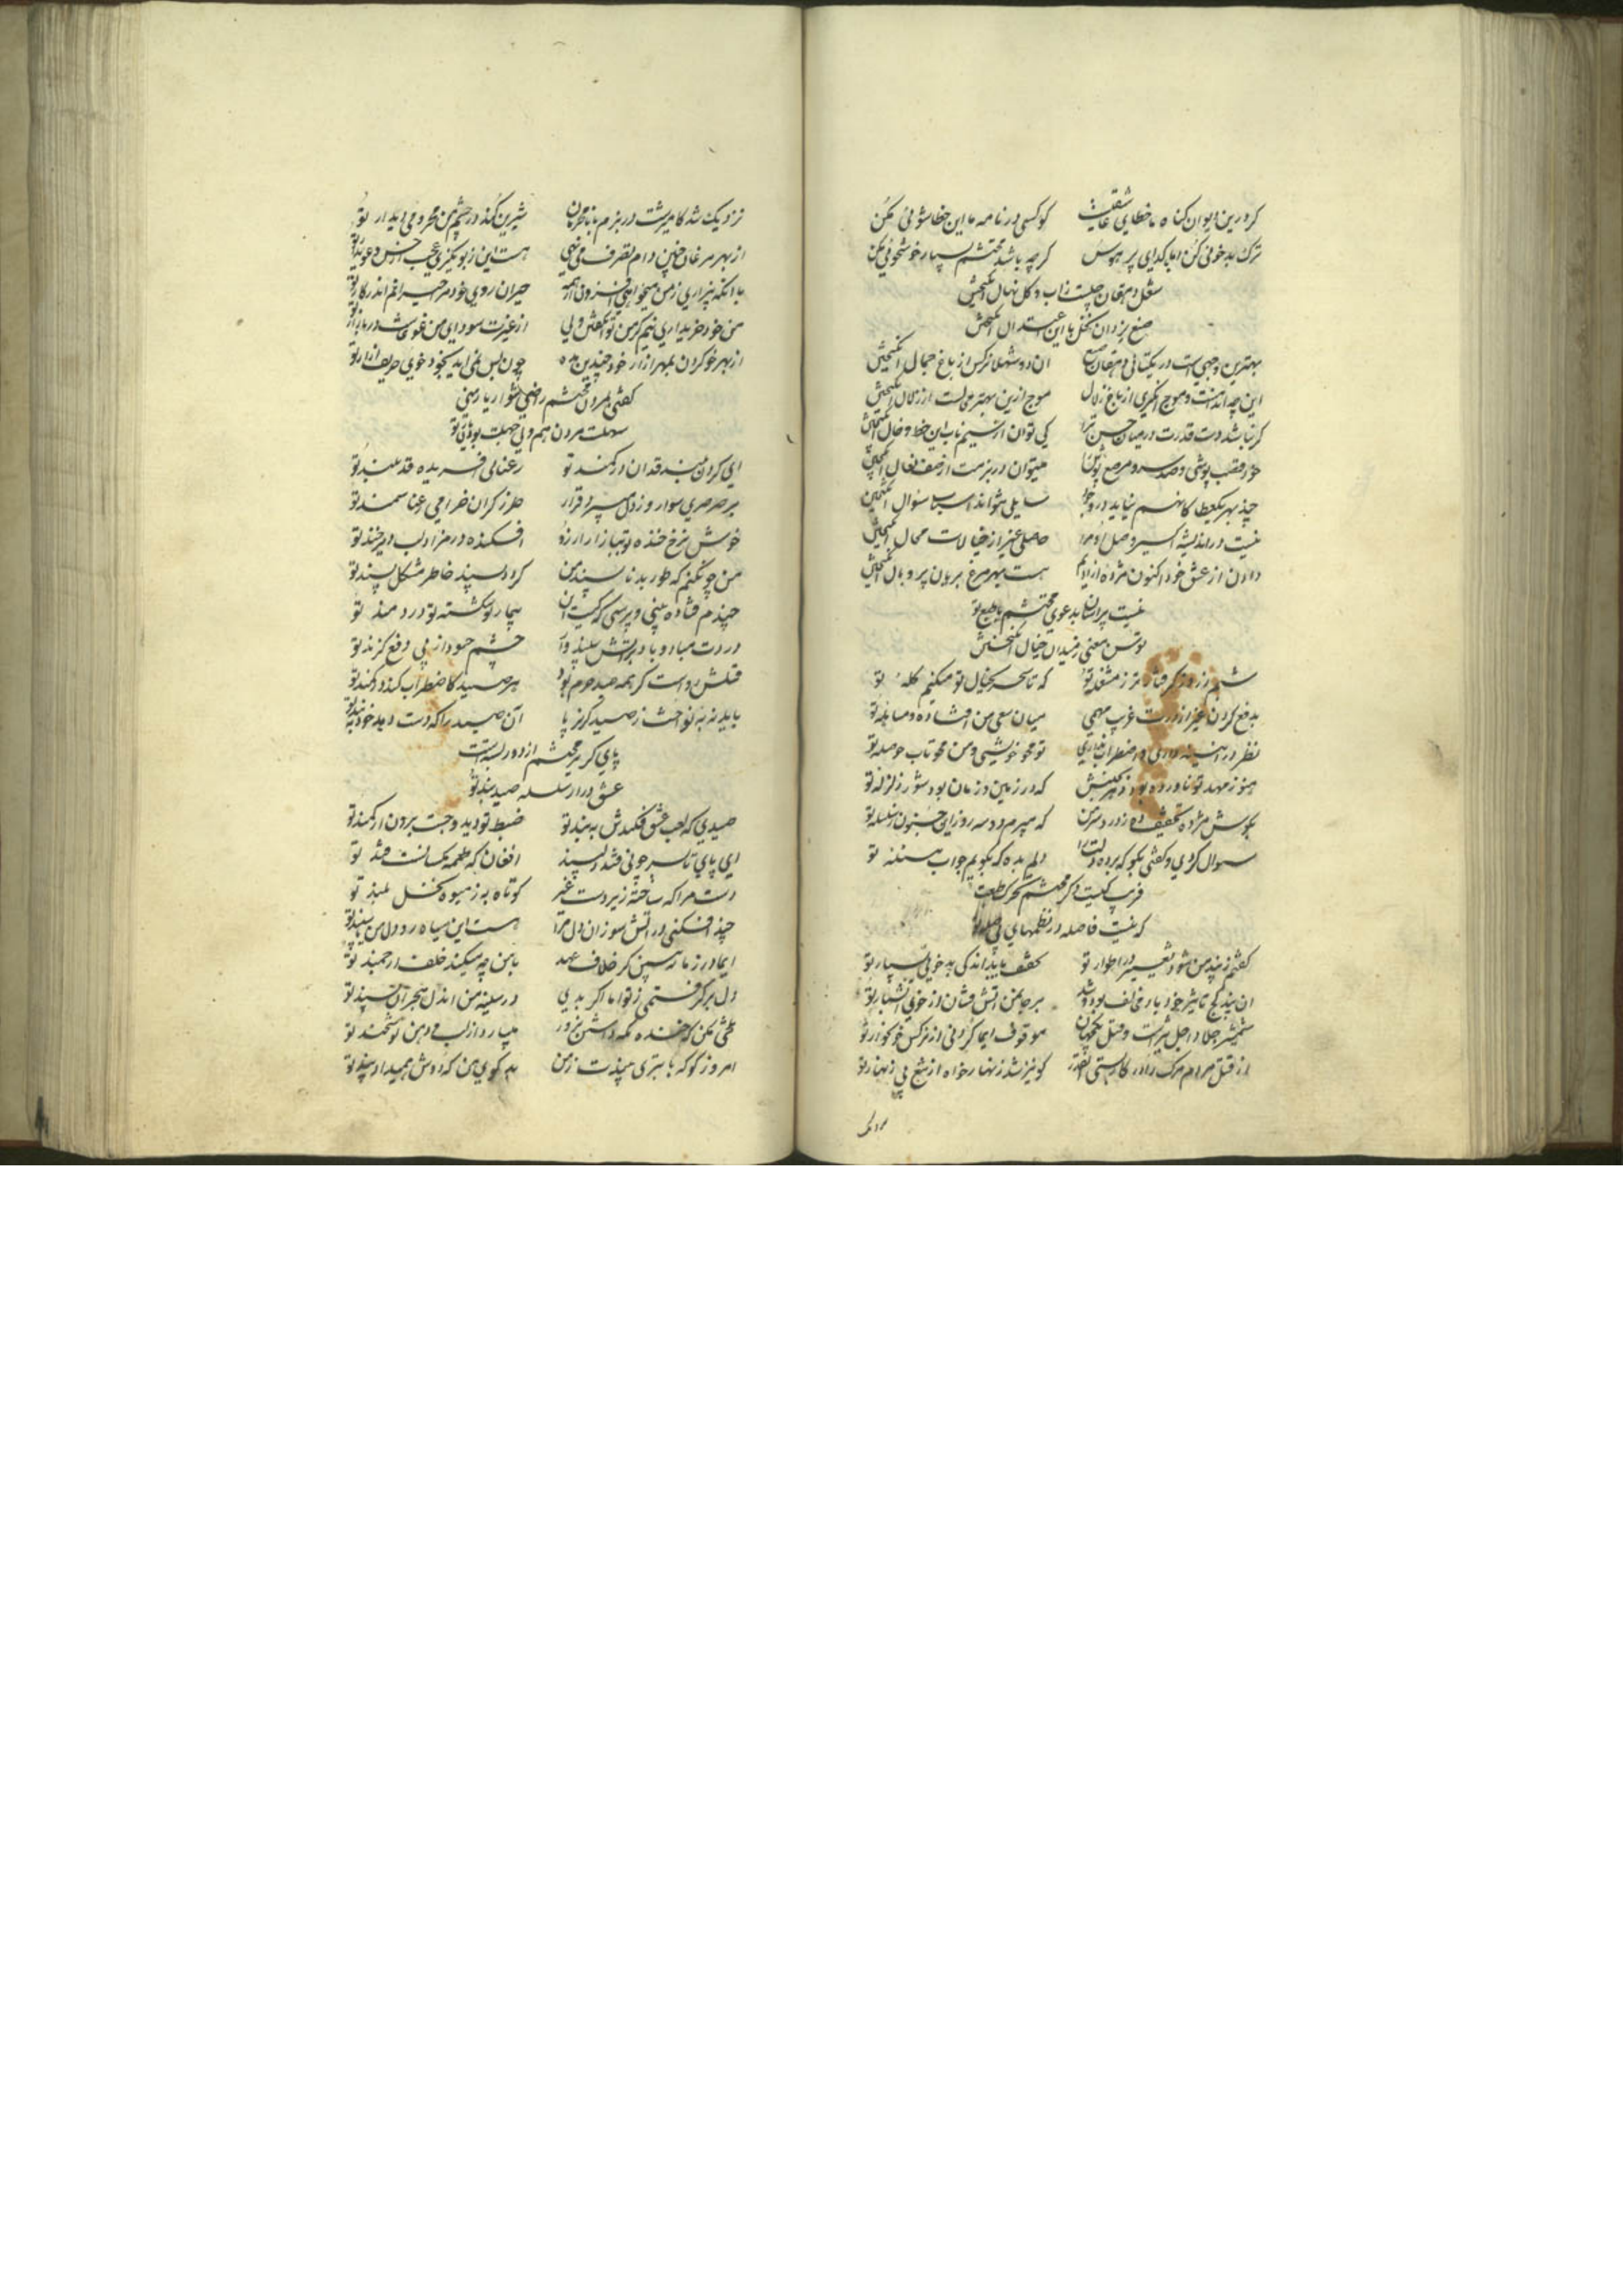 کر درین دیوان کناه ما خطای عاشقیت کو کسی در نامه ما این خطا شوئی مکن
ترک بدخوئی کن اما با کدای پر هوس کر چه باشد محتشم بسیار خوشخوئی مکن
شغل دهقان چیست زاب و کل نهال انکیختن
صنع یزدان نخل با این اعتدال انکیختن
بهترین وجهیست در یکتائی دهقان صنع ان دو شهلا نرکس از باغ جمال انکیختن
این چه اندامست و موج انکیزی از باغ زلال موج ازین بهتر محالست از زلال انکیختن
کر نباشد دست قدرت در میان حسن ترا کی توان از سیم ناب این خط و خال انکیختن
میتوان در بزمت از صف نعال انکیختن
چند بهر یکعطا کانهم نیاید در وجود سایلی بتواند اسباب سؤال انکیختن
نیست در اندیشه اکسیر وصل او مرا حاصلی غیر از خیالات محال انکیختن
دادن از عشق خود اکنون مژده ازادیم هست بهر مرغ بریان پر و بال انکیختن
نیست پر اسان بدعوی محتشم با طبع تو
توسن معنی ز میدان خیال انکیختن
شبم ز روز کرفتار تر ز مشغله تو که تا سحر بخیال تو میکنم کله تو
بدفع کردن غیر از درت غریب مهمی میان سعی من افتاده و مساهله تو
نظر در اینه داری و اضطراب نداری تو محو خویشی و من محو تاب حوصله تو
هنوز مهد تو ناورده بود که در زمین و زمان بود شور زلزله تو
بکوش مژده تخفیف ده ز درد سر من که میرم دو سه روزایی جنون ز سلسله تو
سؤال کردی و کفتی بکو که برده دلت را دلم بده که بکویم جواب مسئله تو
قریب کیست دکر محتشم
که نیست فاصله در نظمهای بی صله تو
کفتم ز پند من شود تغییر در اطوار تو تخفیف یابد اندکی بد خوئی بسیار تو
ان پند کج تاثیر خود باد مخالف بود و شد بر جا من اتش فشان از خوی اتشبار تو
شمشیر جلاد اجل تیز است و قتل یکجهان موقوف ایما کردنی از نرکس خونخوار تو
از قتل مردم مرک را در کار سستی انقدر کو نیز شد زنهار خواه از تیغ بی زنهار تو
نزدیک شد کامیزشت در بزم با نامحرمان شیرین کند در چشم من محرومی دیدار تو
از بهر مرغان چنین دام تصرف می نهی هست این زبونکیری عجیب از حسن دعویدار تو
با انکه بیزاری ز من میخواهی افزون از همه حیران روی خود مرا حیرانم اندر کار تو
من خود خریداری نیم کز من توان کفتن ولی از غیرت سودای من غوغاست در بازار تو
از بهر خو کردن بهر ازار خود چندین مده چون بس نمی اید بخود خوی حریف ازار تو
کفتی بمردن محتشم راضی شو از یار منی
سهلست مردن هم ولی حیفست بودن یار تو
ای کردن بلند قدان در کمند تو رعنائی افریده قد بلند تو
بر صرصری سوار و ز دل میبرد قرار طرز کران خرامی رعنا سمند تو
خوش نرخ خنده تو ببازار ارزو افکنده در مزاد لب دیر خند تو
من چون کنم که طور بد ناپسند من کردد پسند خاطر مشکل پسند تو
چندم فتاده بینی و پرسی که کیست ان بیمار تو شکسته تو دردمند تو
دردت مباد و باد بر اتش سپند وار چشم حسود از پی دفع کزند تو
قتلش رواست کر همه صید حرم بود هر صید کاضطراب کند در کمند تو
باید نه به تواخت ز صید کریز پا آن صید را که دست دهد خود ببند تو
پای کریز محتشم از دور بسته است
عشق دراز سلسله صید بند تو
صیدی که لعب عشق فکندش به بند تو ضبط تو دید و جست برون از کمند تو
افغان که طعمه مکسانست قند تو
دست مرا که ساخته زیر دست غیر کوتاه به ز میوه نخل بلند تو
چند افکنی در اتش سوزان دل مرا هست این سیاه رو دل من یا سپند تو
ای مادر زمانه ببین کز خلاف عهد با من چه میکند خلف ارجمند تو
دل بر کرفتمی ز تو اما اکر بدی در سینه من اندل هجران پسند تو
تلخی مکن که خنده نکه داشتن بزور میبارد از لب و دهن نوشخند تو
امروز کو که با بتری میپذیرت ز من بد کوی من که دوش همیداد پند تو